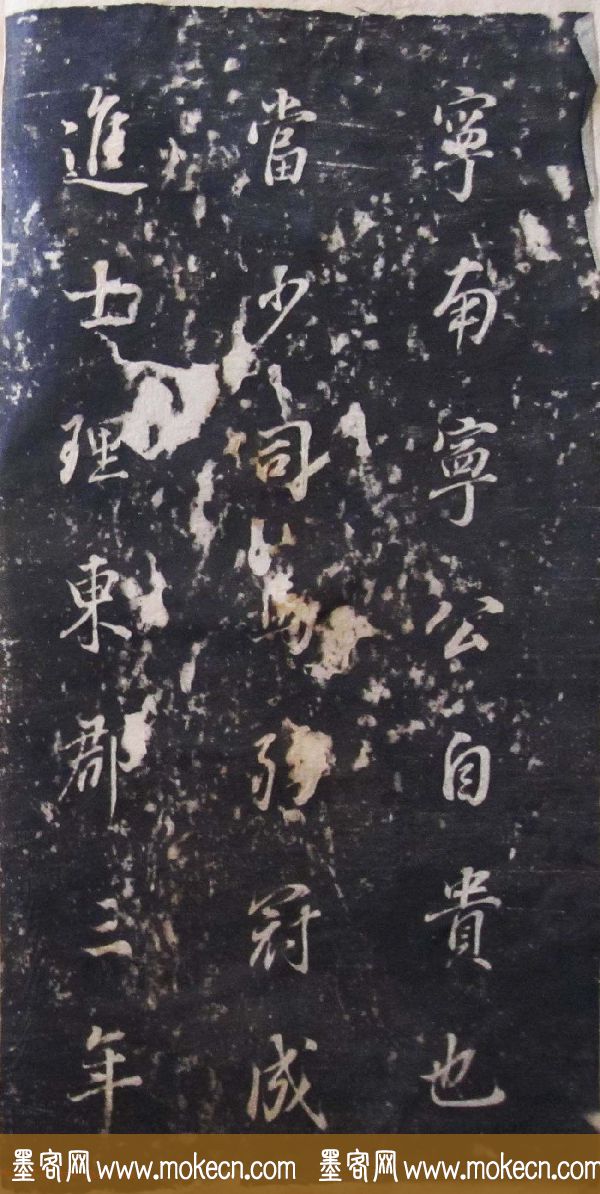 寧南寧公自貴也
當少司馬弱冠成
進士理東郡三年
墨客网 www.mokecn.com 墨客网 www.mokecn.com